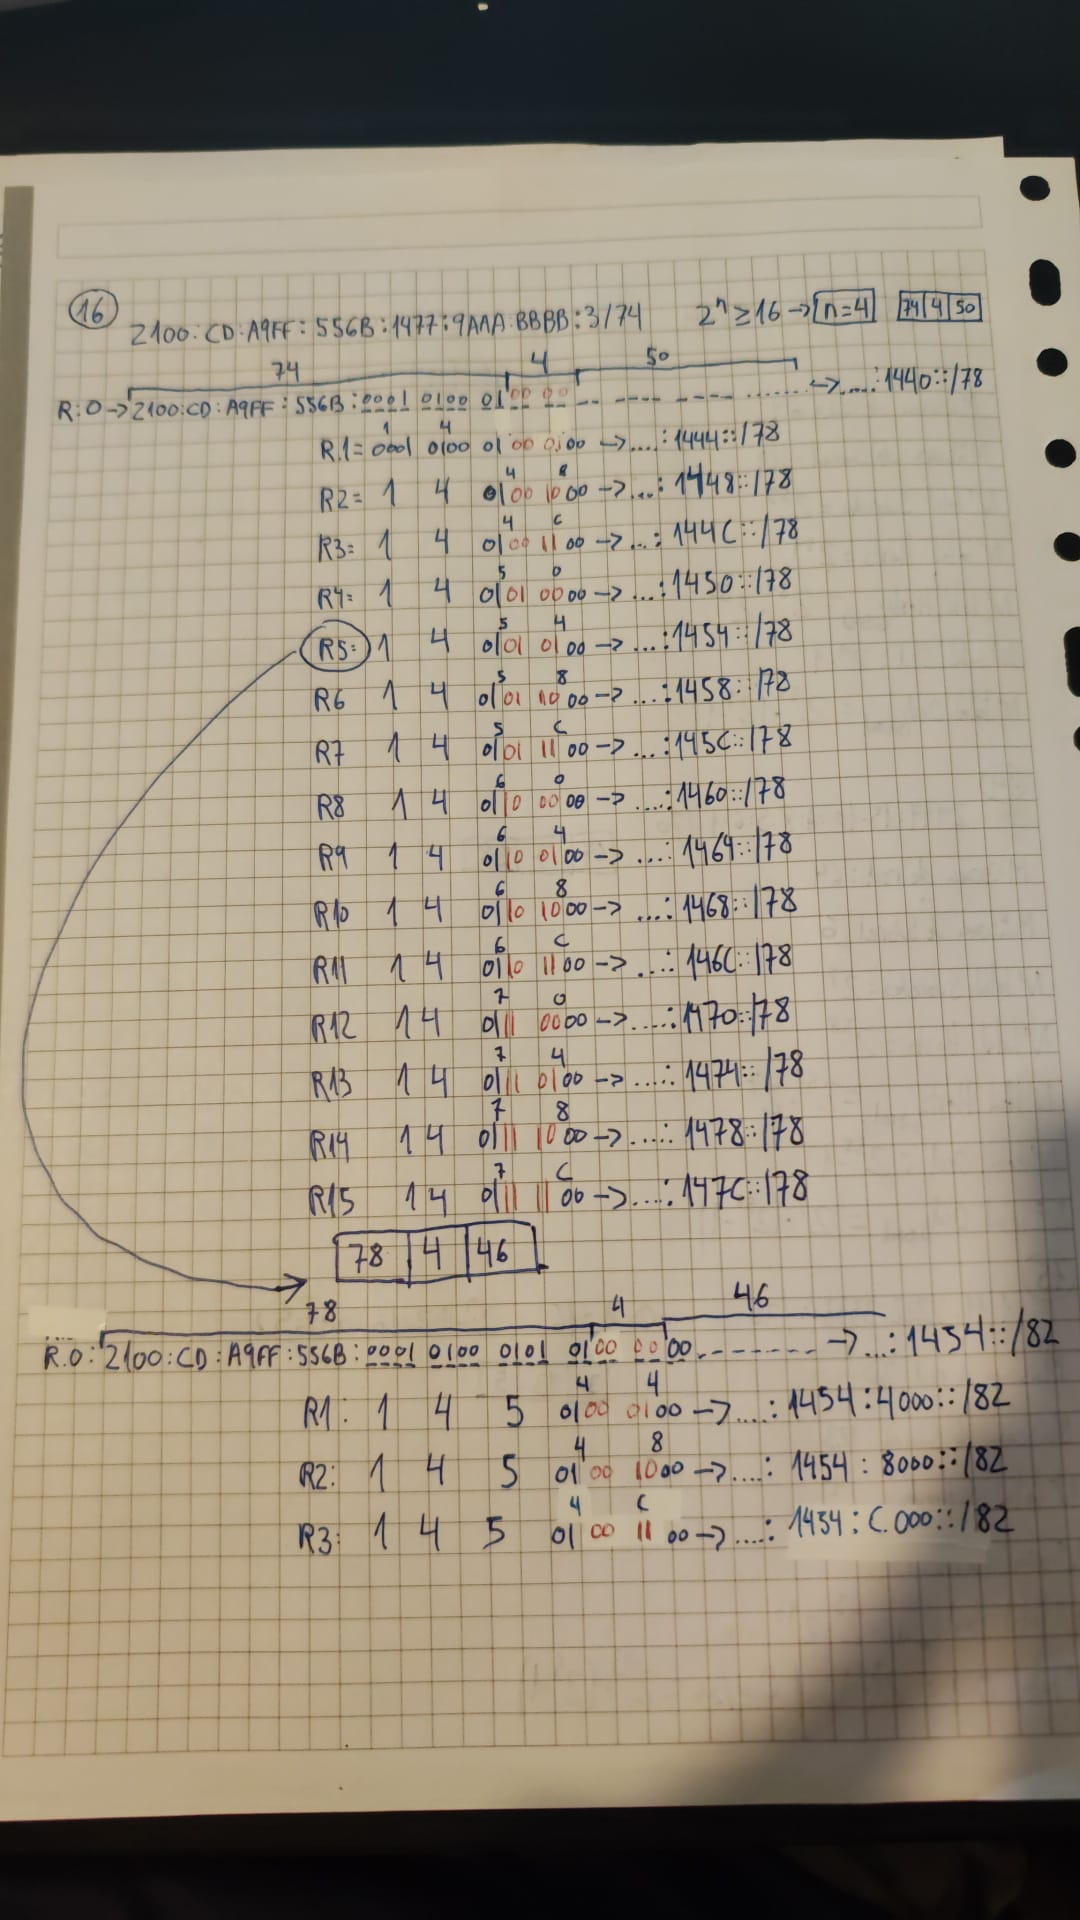 16
2100:CD:A9FF:556B:1477:9AAA:BBBB:3/74 2^n ≥ 16 → n=4 74|4|50
74 4 50
R:0→2100:CD:A9FF:556B:0001 0100 0100 00-- ---- ---- ------ ↔....:1440::/78
1 4
R.1= 0001 0100 0100 0100 →....:1444::/78
4 8
R2= 1 4 0100 1000 →....:1448::/78
4 C
R3= 1 4 0100 1100 →....:144C::/78
5 0
R4= 1 4 0101 0000 →....:1450::/78
5 4
R5= 1 4 0101 0100 →....:1454::/78
5 8
R6 1 4 0101 1000 →....:1458::/78
5 C
R7 1 4 0101 1100 →....:145C::/78
6 0
R8 1 4 0110 0000 →....:1460::/78
6 4
R9 1 4 0110 0100 →....:1464::/78
6 8
R10 1 4 0110 1000 →....:1468::/78
6 C
R11 1 4 0110 1100 →....:146C::/78
7 0
R12 1 4 0111 0000 →....:1470::/78
7 4
R13 1 4 0111 0100 →....:1474::/78
7 8
R14 1 4 0111 1000 →....:1478::/78
7 C
R15 1 4 0111 1100 →....:147C::/78
78|4|46
78 4 46
R.0: 2100:CD:A9FF:556B:0001 0100 0101 0100 0000.------- →...:1454::/82
4 4
R1: 1 4 5 0100 0100 →....:1454:4000::/82
4 8
R2: 1 4 5 0100 1000 →....:1454:8000::/82
4 C
R3: 1 4 5 0100 1100 →....:1454:C000::/82